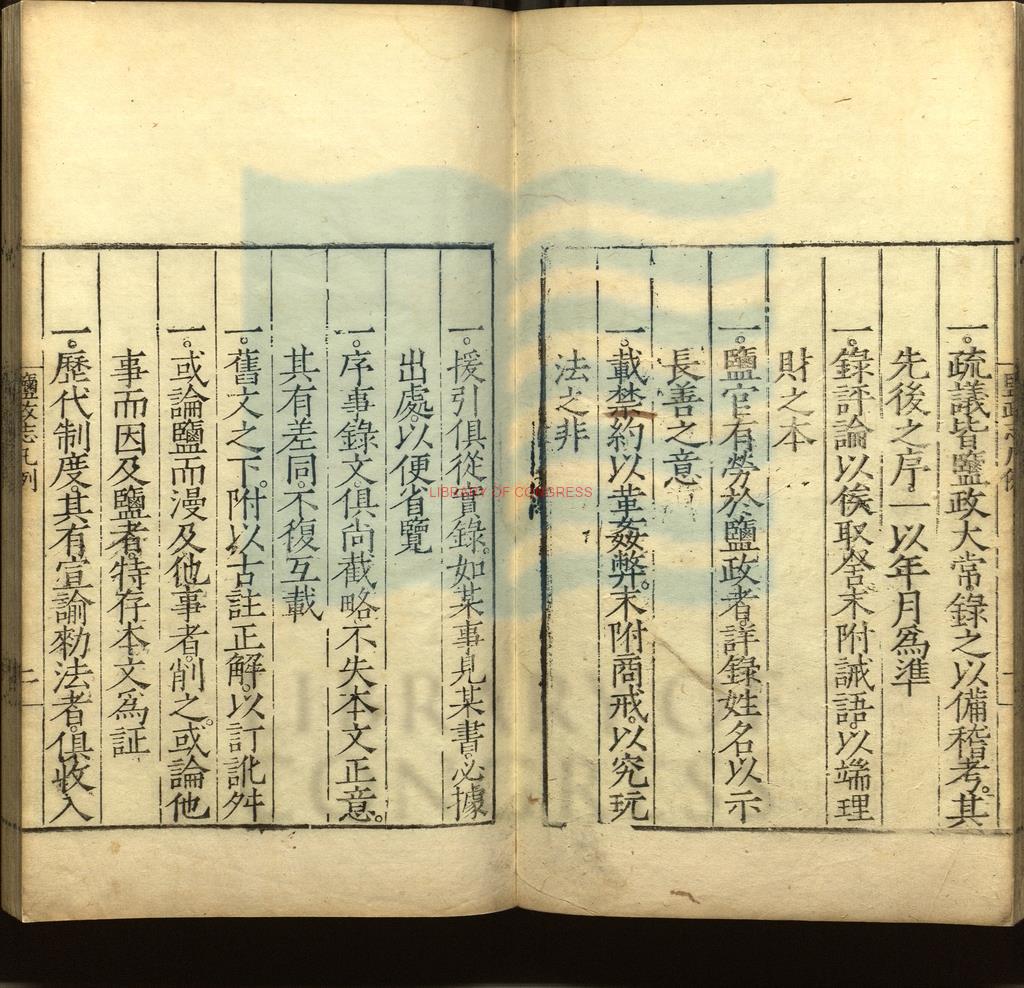 一。疏議皆鹽政大常。錄之以備稽考。其
先後之序。一以年月爲準
一。錄評論以俟取舍末附誡語。以端理
財之本
一。鹽官有勞於鹽政者。詳錄姓名以示
長善之意
一。載禁約以革姦弊。末附商戒。以究玩
法之非
一。援引俱從實錄。如某事見某書。必據
出處。以便省覽
一。序事錄文。俱尚截略。不失本文正意。
其有差同。不復互載
一。舊文之下。附以古註正解。以訂訛舛
一。或論鹽而漫及他事者。削之。或論他
事而因及鹽者。特存本文爲証
一。歷代制度。其有宣諭勑法者。俱收入
鹽政志凡例
二
LIBRARY OF CONGRESS